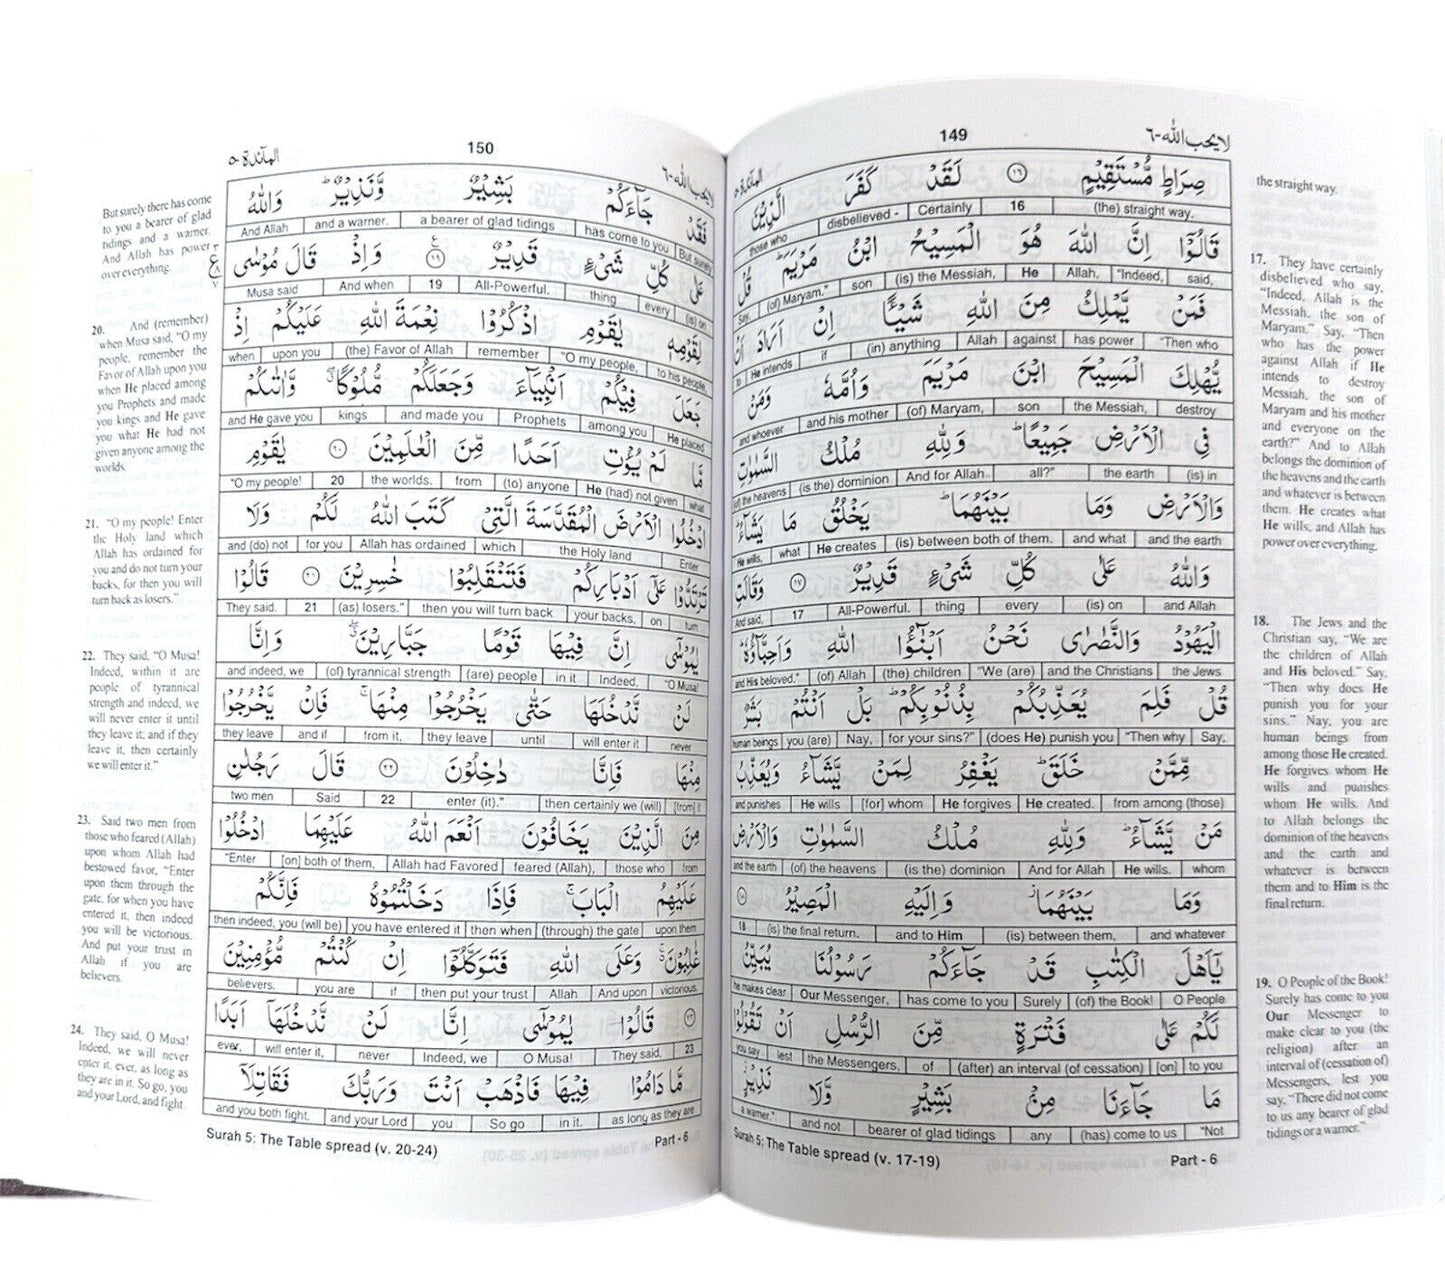 لا يحب الله-٦ 149 المآئدة-٥
صِرَاطٍ مُّسْتَقِيْمٍ ١٦ لَقَدْ كَفَرَ الَّذِيْنَ
(the) straight way. 16 Certainly disbelieved - those who
قَالُوْٓا اِنَّ اللّٰهَ هُوَ الْمَسِيْحُ ابْنُ مَرْيَمَ ؕ قُلْ
said, "Indeed, Allah, He (is) the Messiah, son (of) Maryam." Say,
فَمَنْ يَّمْلِكُ مِنَ اللّٰهِ شَيْـًٔا اِنْ اَرَادَ اَنْ
"Then who has power against Allah (in) anything if He intends to
يُّهْلِكَ الْمَسِيْحَ ابْنَ مَرْيَمَ وَاُمَّهٗ وَمَنْ
destroy the Messiah, son (of) Maryam, and his mother and whoever
فِى الْاَرْضِ جَمِيْعًا ؕ وَلِلّٰهِ مُلْكُ السَّمٰوٰتِ
(is) in the earth all?" And for Allah (is the) dominion (of) the heavens
وَالْاَرْضِ وَمَا بَيْنَهُمَا ؕ يَخْلُقُ مَا يَشَآءُ ؕ
and the earth and what (is) between both of them. He creates what He wills,
وَاللّٰهُ عَلٰى كُلِّ شَىْءٍ قَدِيْرٌ ١٧ وَقَالَتِ
and Allah (is) on every thing All-Powerful. 17 And said,
الْيَهُوْدُ وَالنَّصٰرٰى نَحْنُ اَبْنٰٓؤُا اللّٰهِ وَاَحِبَّآؤُهٗ ؕ
the Jews and the Christians "We (are) (the) children (of) Allah and His beloved."
قُلْ فَلِمَ يُعَذِّبُكُمْ بِذُنُوْبِكُمْ ؕ بَلْ اَنْتُمْ بَشَرٌ
Say, "Then why (does He) punish you for your sins?" Nay, you (are) human beings
مِّمَّنْ خَلَقَ ؕ يَغْفِرُ لِمَنْ يَّشَآءُ وَيُعَذِّبُ
from among (those) He created. He forgives [for] whom He wills and punishes
مَنْ يَّشَآءُ ؕ وَلِلّٰهِ مُلْكُ السَّمٰوٰتِ وَالْاَرْضِ
whom He wills. And for Allah (is the) dominion (of) the heavens and the earth
وَمَا بَيْنَهُمَا ؗ وَاِلَيْهِ الْمَصِيْرُ ١٨
and whatever (is) between them, and to Him (is) the final return. 18
يٰٓاَهْلَ الْكِتٰبِ قَدْ جَآءَكُمْ رَسُوْلُنَا يُبَيِّنُ
O People (of) the Book! Surely has come to you Our Messenger, he makes clear
لَكُمْ عَلٰى فَتْرَةٍ مِّنَ الرُّسُلِ اَنْ تَقُوْلُوْا
to you [on] (after) an interval (of cessation) of the Messengers, lest you say
مَا جَآءَنَا مِنْۢ بَشِيْرٍ وَّلَا نَذِيْرٍ ؗ
"Not (has) come to us any bearer of glad tidings and not a warner."
Surah 5: The Table spread (v. 17-19) Part - 6
the straight way.
17. They have certainly
disbelieved who say,
"Indeed, Allah is the
Messiah, the son of
Maryam." Say, "Then
who has the power
against Allah if He
intends to destroy
Messiah, the son of
Maryam and his mother
and everyone on the
earth?" And to Allah
belongs the dominion of
the heavens and the earth
and whatever is between
them. He creates what
He wills, and Allah has
power over everything.
18. The Jews and the
Christian say, "We are
the children of Allah
and His beloved." Say,
"Then why does He
punish you for your
sins." Nay, you are
human beings from
among those He created.
He forgives whom He
wills and punishes
whom He wills. And
to Allah belongs the
dominion of the heavens
and the earth and
whatever is between
them and to Him is the
final return.
19. O People of the Book!
Surely has come to you
Our Messenger to
make clear to you (the
religion) after an
interval of (cessation of)
Messengers, lest you
say, "There did not come
to us any bearer of glad
tidings or a warner."
لا يحب الله-٦ 150 المآئدة-٥
فَقَدْ جَآءَكُمْ بَشِيْرٌ وَّنَذِيْرٌ ؕ وَاللّٰهُ
But surely has come to you a bearer of glad tidings and a warner. And Allah
عَلٰى كُلِّ شَىْءٍ قَدِيْرٌ ١٩ ع وَاِذْ قَالَ مُوْسٰى
(is) on every thing All-Powerful. 19 And when Musa said
لِقَوْمِهٖ يٰقَوْمِ اذْكُرُوْا نِعْمَةَ اللّٰهِ عَلَيْكُمْ اِذْ
to his people, "O my people, remember (the) Favor of Allah upon you when
جَعَلَ فِيْكُمْ اَنْۢبِيَآءَ وَجَعَلَكُمْ مُّلُوْكًا ۖ وَّاٰتٰىكُمْ
He placed among you Prophets and made you kings and He gave you
مَّا لَمْ يُؤْتِ اَحَدًا مِّنَ الْعٰلَمِيْنَ ٢٠ يٰقَوْمِ
what He (had) not given (to) anyone from the worlds. 20 "O my people!
ادْخُلُوا الْاَرْضَ الْمُقَدَّسَةَ الَّتِىْ كَتَبَ اللّٰهُ لَكُمْ وَلَا
Enter the Holy land which Allah has ordained for you and (do) not
تَرْتَدُّوْا عَلٰٓى اَدْبَارِكُمْ فَتَنْقَلِبُوْا خٰسِرِيْنَ ٢١ قَالُوْا
turn on your backs, then you will turn back (as) losers." 21 They said.
يٰمُوْسٰٓى اِنَّ فِيْهَا قَوْمًا جَبَّارِيْنَ ۖ وَاِنَّا
"O Musa! Indeed, in it (are) people (of) tyrannical strength and indeed, we
لَنْ نَّدْخُلَهَا حَتّٰى يَخْرُجُوْا مِنْهَا ۚ فَاِنْ يَّخْرُجُوْا
never will enter it until they leave from it, and if they leave
مِنْهَا فَاِنَّا دٰخِلُوْنَ ٢٢ قَالَ رَجُلٰنِ
[from] it then certainly we (will) enter (it)." 22 Said two men
مِنَ الَّذِيْنَ يَخَافُوْنَ اَنْعَمَ اللّٰهُ عَلَيْهِمَا ادْخُلُوْا
from those who feared (Allah), Allah had Favored [on] both of them, "Enter
عَلَيْهِمُ الْبَابَ ۚ فَاِذَا دَخَلْتُمُوْهُ فَاِنَّكُمْ
upon them (through) the gate, then when you have entered it then indeed, you (will be)
غٰلِبُوْنَ ۚ وَعَلَى اللّٰهِ فَتَوَكَّلُوْٓا اِنْ كُنْتُمْ مُّؤْمِنِيْنَ
victorious. And upon Allah then put your trust if you are believers.
٢٣ قَالُوْا يٰمُوْسٰٓى اِنَّا لَنْ نَّدْخُلَهَآ اَبَدًا
23 They said, O Musa! Indeed, we never will enter it, ever,
مَّا دَامُوْا فِيْهَا فَاذْهَبْ اَنْتَ وَرَبُّكَ فَقَاتِلَآ
as long as they are in it. So go you and your Lord and you both fight.
Surah 5: The Table spread (v. 20-24) Part - 6
But surely there has come
to you a bearer of glad
tidings and a warner.
And Allah has power
over everything.
20. And (remember)
when Musa said, "O my
people, remember the
Favor of Allah upon you
when He placed among
you Prophets and made
you kings and He gave
you what He had not
given anyone among the
worlds.
21. "O my people! Enter
the Holy land which
Allah has ordained for
you and do not turn your
backs, for then you will
turn back as losers."
22. They said, "O Musa!
Indeed, within it are
people of tyrannical
strength and indeed, we
will never enter it until
they leave it; and if they
leave it, then certainly
we will enter it."
23. Said two men from
those who feared (Allah)
upon whom Allah had
bestowed favor, "Enter
upon them through the
gate, for when you have
entered it, then indeed
you will be victorious.
And put your trust in
Allah if you are
believers.
24. They said, O Musa!
Indeed, we will never
enter it, ever, as long as
they are in it. So go, you
and your Lord, and fight.